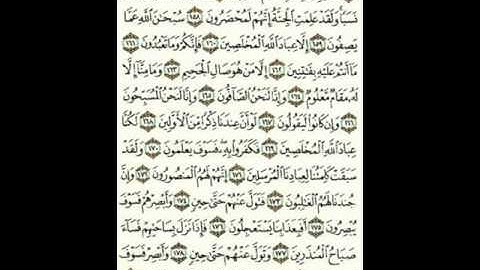 نَسَبًا وَلَقَدْ عَلِمَتِ ٱلْجِنَّةُ إِنَّهُمْ لَمُحْضَرُونَ ١٥٨ سُبْحَٰنَ ٱللَّهِ عَمَّا
يَصِفُونَ ١٥٩ إِلَّا عِبَادَ ٱللَّهِ ٱلْمُخْلَصِينَ ١٦٠ فَإِنَّكُمْ وَمَا تَعْبُدُونَ ١٦١
مَآ أَنتُمْ عَلَيْهِ بِفَٰتِنِينَ ١٦٢ إِلَّا مَنْ هُوَ صَالِ ٱلْجَحِيمِ ١٦٣ وَمَا مِنَّآ إِلَّا
لَهُۥ مَقَامٌ مَّعْلُومٌ ١٦٤ وَإِنَّا لَنَحْنُ ٱلصَّآفُّونَ ١٦٥ وَإِنَّا لَنَحْنُ ٱلْمُسَبِّحُونَ
١٦٦ وَإِن كَانُوا۟ لَيَقُولُونَ ١٦٧ لَوْ أَنَّ عِندَنَا ذِكْرًا مِّنَ ٱلْأَوَّلِينَ ١٦٨ لَكُنَّا
عِبَادَ ٱللَّهِ ٱلْمُخْلَصِينَ ١٦٩ فَكَفَرُوا۟ بِهِۦ فَسَوْفَ يَعْلَمُونَ ١٧٠ وَلَقَدْ
سَبَقَتْ كَلِمَتُنَا لِعِبَادِنَا ٱلْمُرْسَلِينَ ١٧١ إِنَّهُمْ لَهُمُ ٱلْمَنصُورُونَ ١٧٢ وَإِنَّ
جُندَنَا لَهُمُ ٱلْغَٰلِبُونَ ١٧٣ فَتَوَلَّ عَنْهُمْ حَتَّىٰ حِينٍ ١٧٤ وَأَبْصِرْهُمْ فَسَوْفَ
يُبْصِرُونَ ١٧٥ أَفَبِعَذَابِنَا يَسْتَعْجِلُونَ ١٧٦ فَإِذَا نَزَلَ بِسَاحَتِهِمْ فَسَآءَ
صَبَاحُ ٱلْمُنذَرِينَ ١٧٧ وَتَوَلَّ عَنْهُمْ حَتَّىٰ حِينٍ ١٧٨ وَأَبْصِرْ فَسَوْفَ